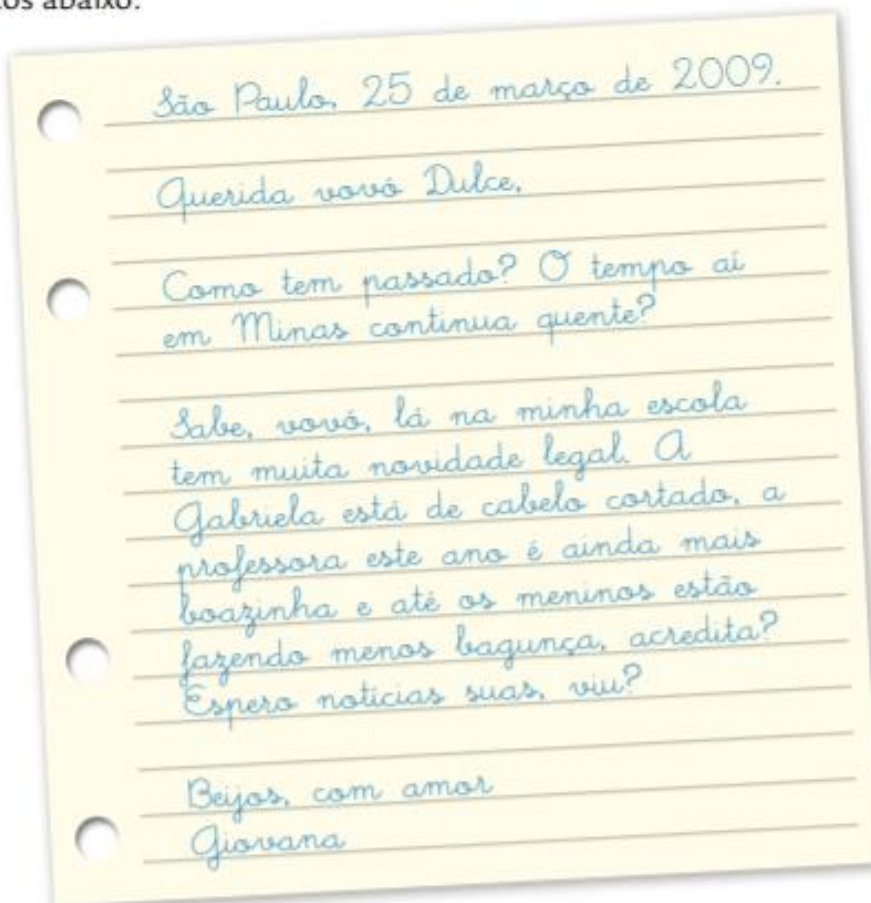 abaixo.
São Paulo, 25 de março de 2009.
Querida vovó Dulce,
Como tem passado? O tempo aí
em Minas continua quente?
Sabe, vovó, lá na minha escola
tem muita novidade legal. A
Gabriela está de cabelo cortado, a
professora este ano é ainda mais
boazinha e até os meninos estão
fazendo menos bagunça, acredita?
Espero notícias suas, viu?
Beijos, com amor
Giovana